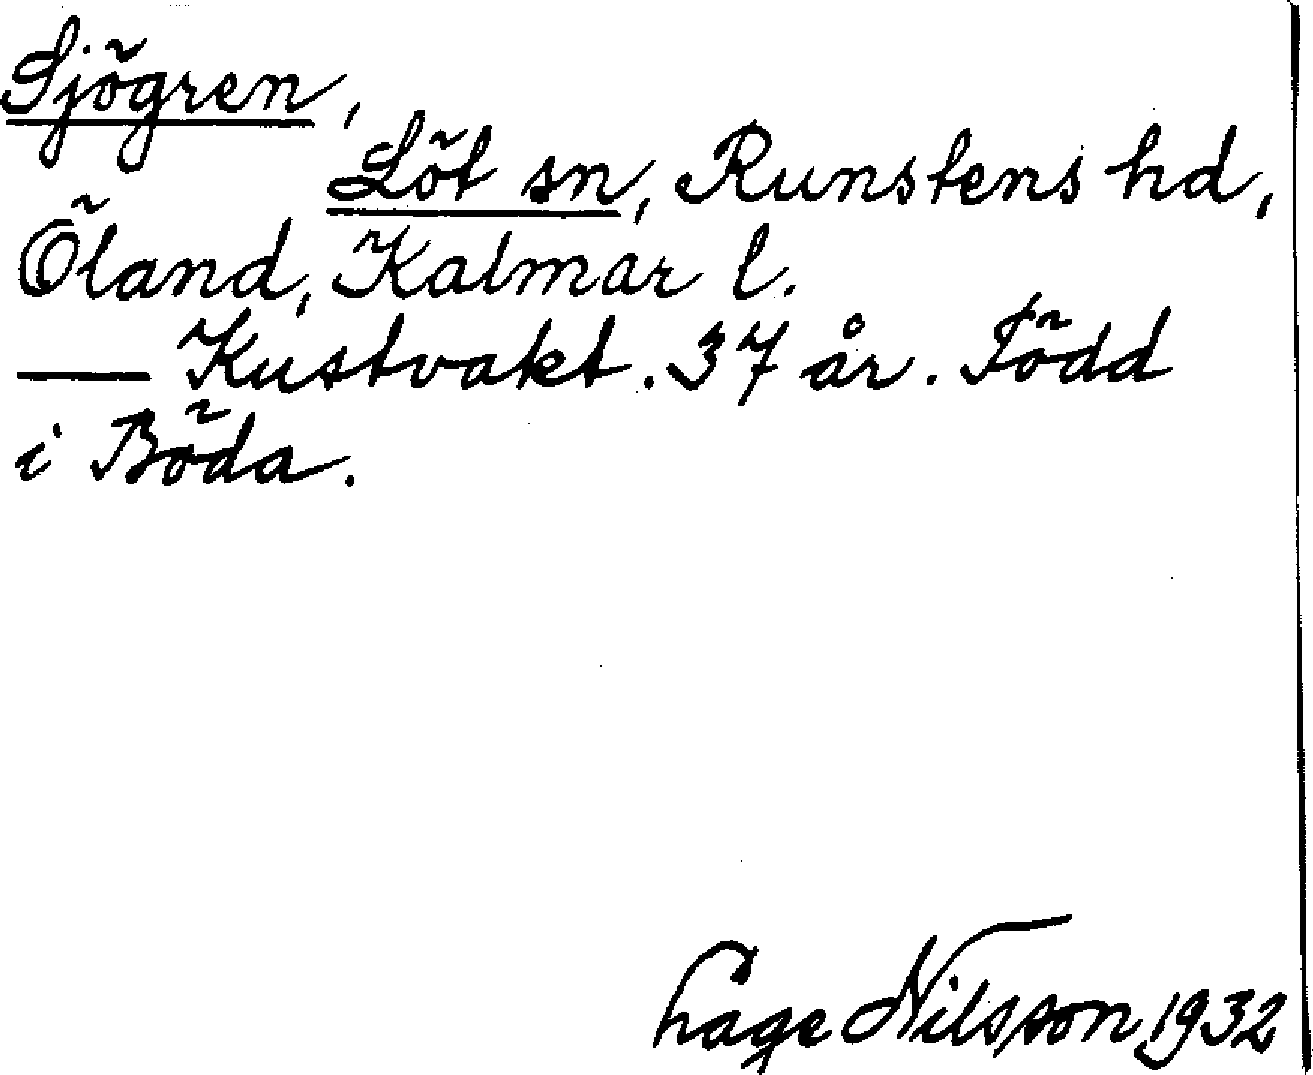 Sjögren,
Löt sn, Runstens hd,
Öland, Kalmar l.
— Kustvakt. 37 år. Född
i Böda.
Lage Nilsson 1932